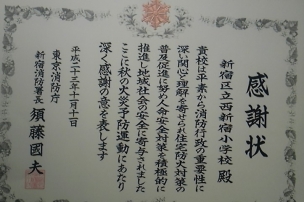 感謝状
新宿区立西新宿小学校 殿
貴校は平素から消防行政の重要性に
深い関心と理解を寄せられ住宅防火対策の
普及促進に努め人命安全対策を積極的に
推進し地域社会の安全に寄与されました
ここに秋の火災予防運動にあたり
深く感謝の意を表します
平成二十三年十一月十日
東京消防庁
新宿消防署長 須藤國夫